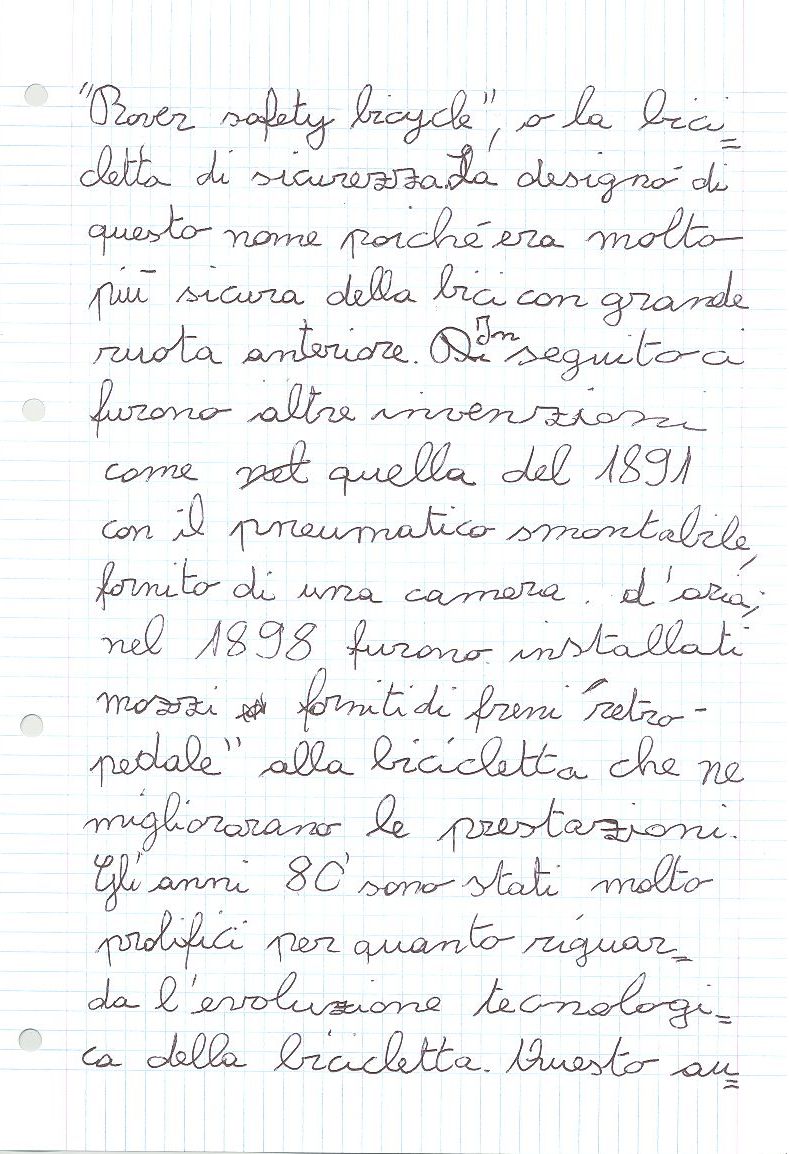 "Rover safety bicycle", o la bici=
cletta di sicurezza. La designò di
questo nome poiché era molto
più sicura della bici con grande
ruota anteriore. In seguito ci
furono altre invenzioni
come quella del 1891
con il pneumatico smontabile,
fornito di una camera. d'aria;
nel 1898 furono installati
mozzi forniti di freni "retro-
pedale" alla bicicletta che ne
migliorarano le prestazioni.
Gli anni 80' sono stati molto
prolifici per quanto riguar=
da l'evoluzione tecnologi=
ca della bicicletta. Questo au=